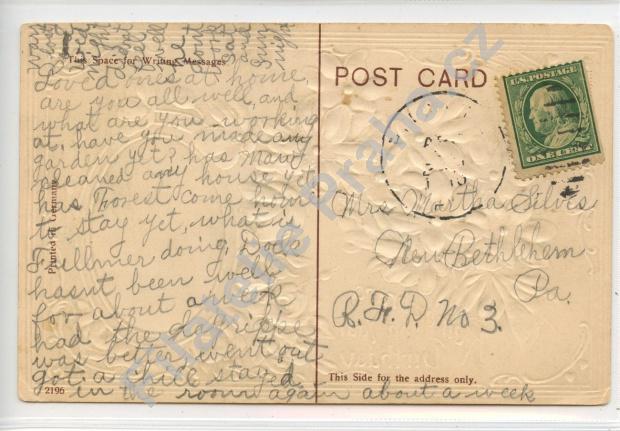 This Space for Writing Messages
Loved ones at home,
are you all well, and
what are you working
at, have you made any
garden yet? has Mary
cleaned any house yet
has Forest come home
to stay yet, what is
Fullmer doing, Docs
hasnt been well
for about a week
had the da grippe
was better, went out
got a chill stayed
in the room again about a week
Printed in Germany
2196
POST CARD
U.S. POSTAGE
ONE CENT
Mrs Martha Silvis
New Bethlehem
Pa.
R.F.D. No 3.
This Side for the address only.
Filatelie Praha.cz